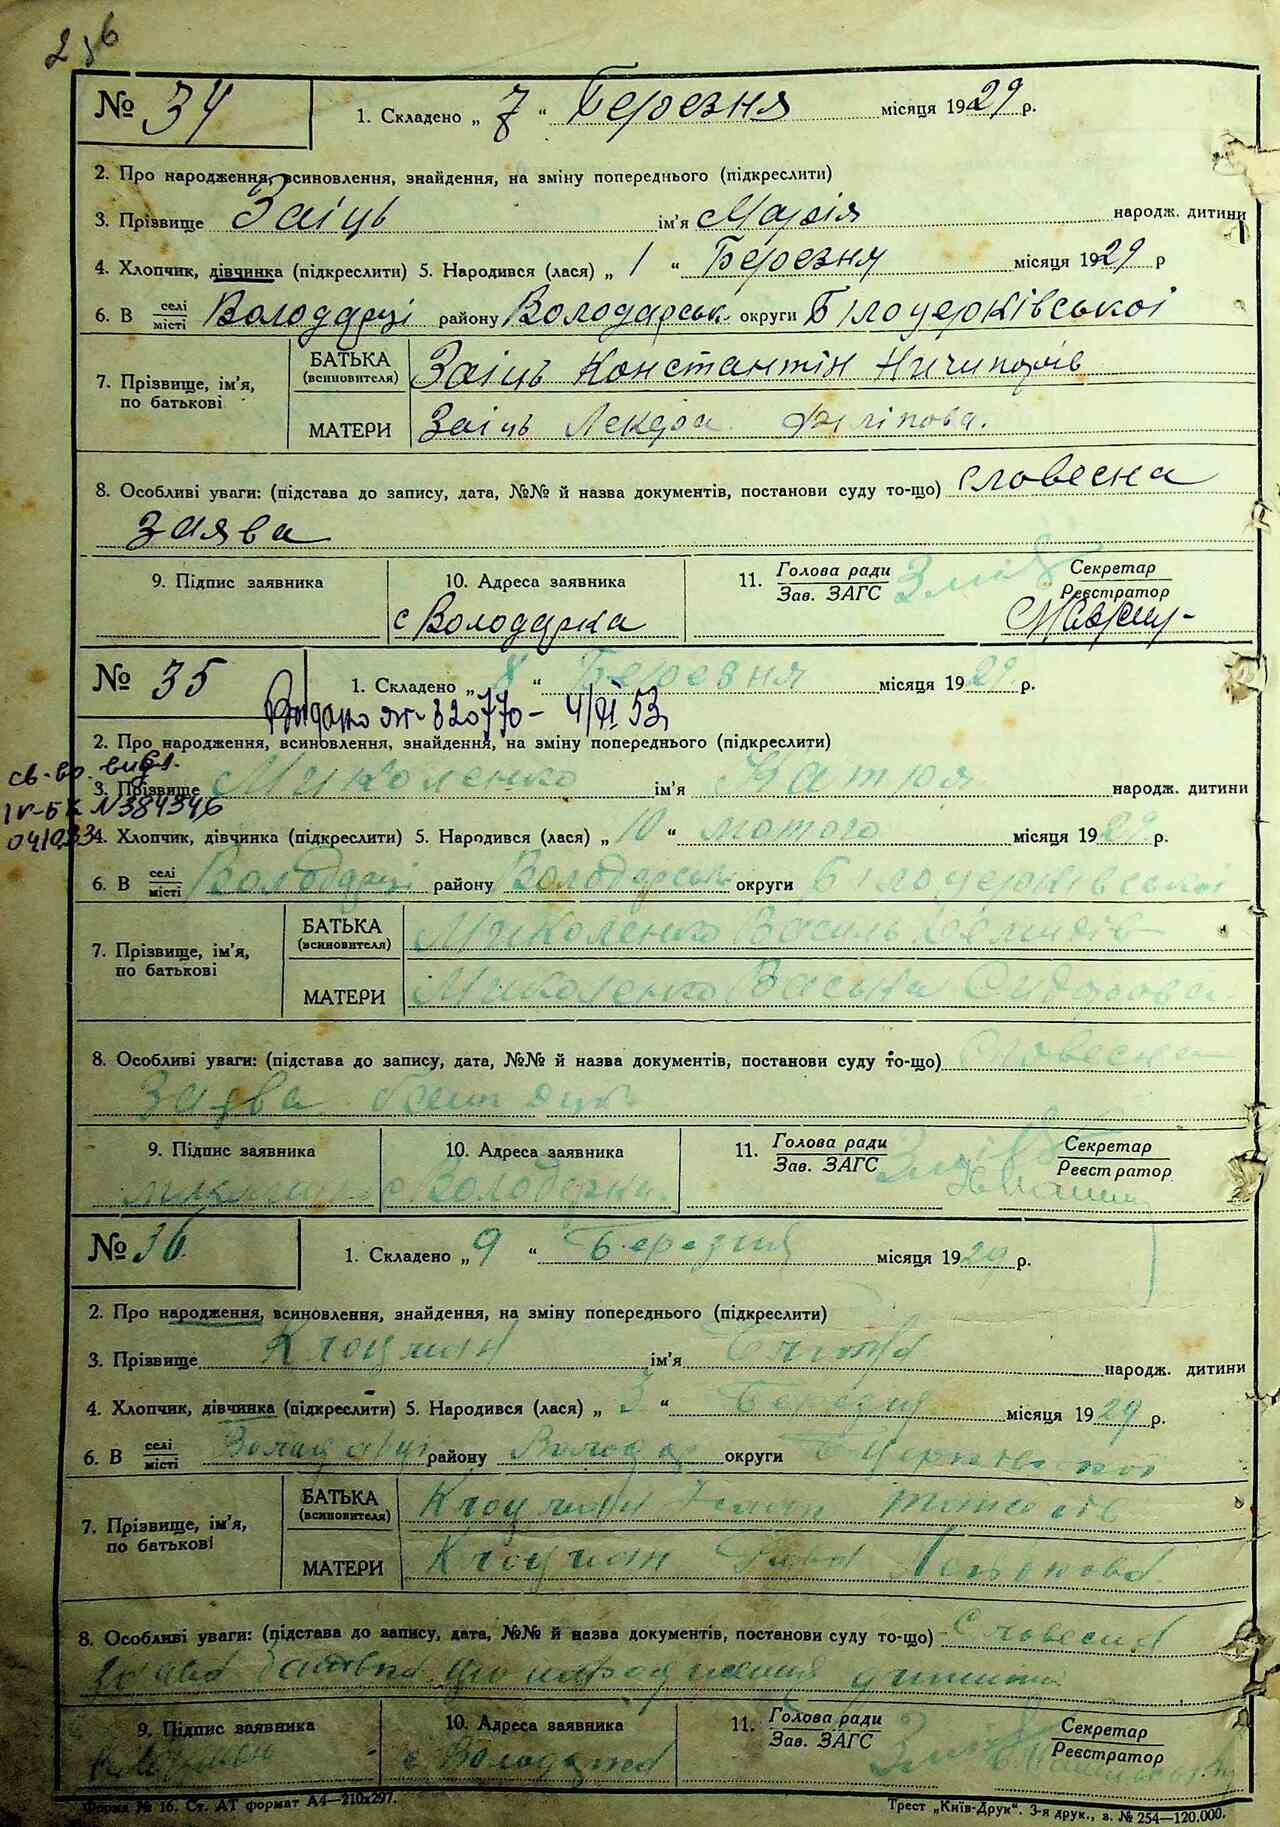 № 34
1. Складено „ 7 “ Березня місяця 1929 р.
2. Про народження, всиновлення, знайдення, на зміну попереднього (підкреслити)
3. Прізвище Заіць ім'я Марія народж. дитини
4. Хлопчик, дівчинка (підкреслити) 5. Народився (лася) „ 1 “ Березня місяця 1929 р
6. В селі/місті Володарці району Володарськ. округи Білоцерківської
7. Прізвище, ім'я, по батькові
БАТЬКА (всиновителя) Заіць Константін Ничипорів
МАТЕРИ Заіць Лекера Філіпова.
8. Особливі уваги: (підстава до запису, дата, №№ й назва документів, постанови суду то-що) словесна
заява
9. Підпис заявника 10. Адреса заявника 11. Голова ради/Зав. ЗАГС Секретар/Реєстратор
с Володарка
№ 35
1. Складено „ 8 “ Березня місяця 1929. р.
Видано 820770 – 4/VI 53
2. Про народження, всиновлення, знайдення, на зміну попереднього (підкреслити)
св-во. вида.
3. Прізвище Миколенко ім'я Катря народж. дитини
IV-БК №384346
4. Хлопчик, дівчинка (підкреслити) 5. Народився (лася) „ 10 “ лютого місяця 1929. р.
6. В селі/місті Володарці району Володарськ округи Білоцерківської
7. Прізвище, ім'я, по батькові
БАТЬКА (всиновителя) Миколенко Василь Демидів
МАТЕРИ Миколенко Васіна Сидорова
8. Особливі уваги: (підстава до запису, дата, №№ й назва документів, постанови суду то-що) словесна
заява
9. Підпис заявника 10. Адреса заявника 11. Голова ради/Зав. ЗАГС Секретар/Реєстратор
с. Володарка.
№ 36.
1. Складено „ 9 “ Березня місяця 1929 р.
2. Про народження, всиновлення, знайдення, на зміну попереднього (підкреслити)
3. Прізвище Клоцман ім'я народж. дитини
4. Хлопчик, дівчинка (підкреслити) 5. Народився (лася) „ 3 “ Березня місяця 1929 р.
6. В селі/місті Володарці району Володар округи Б церківської
7. Прізвище, ім'я, по батькові
БАТЬКА (всиновителя) Клоцман
МАТЕРИ Клоцман
8. Особливі уваги: (підстава до запису, дата, №№ й назва документів, постанови суду то-що) Словесна
заява батька про народження дитини
9. Підпис заявника 10. Адреса заявника 11. Голова ради/Зав. ЗАГС Секретар/Реєстратор
Клоцман с Володарка
Форма № 16. Ст. АТ формат А4—210х297. Трест „Київ-Друк“. 3-я друк., з. № 254—120.000.